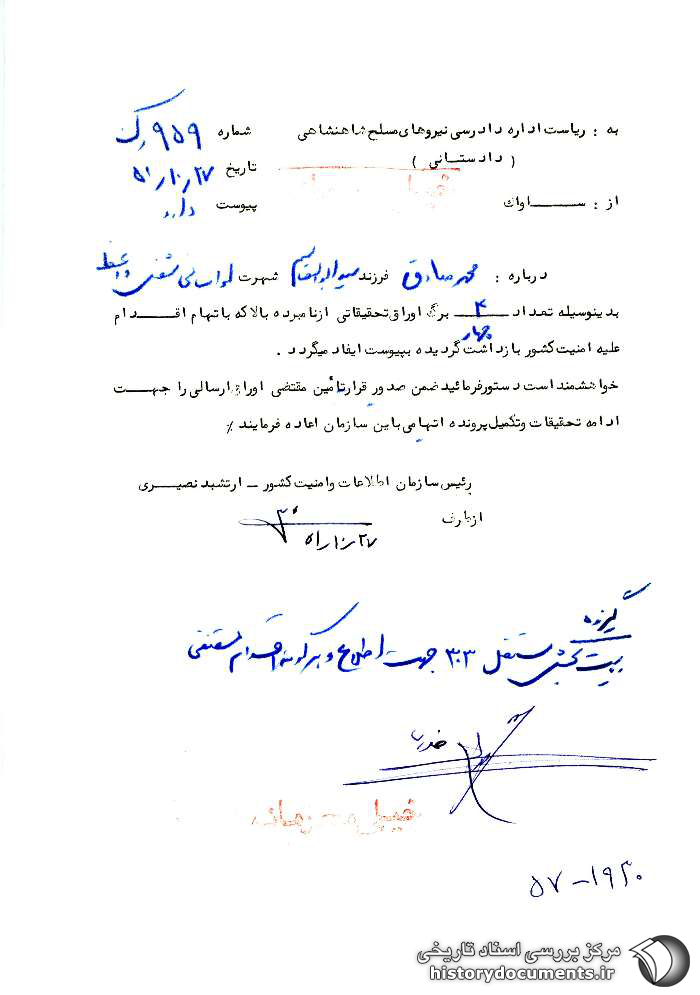 به : ریاست اداره دادرسی نیروهای مسلح شاهنشاهی
شماره ۹۵۹
( دادستانی )
تاریخ ۲۷ر۱۰ر۵۱
خیلی
از : ســـــاواک
پیوست دارد
درباره : محمد صادق فرزند سید ابوالقاسم شهرت
بدینوسیله تعداد ۴ برگ اوراق تحقیقاتی از نامبرده بالا که باتهام اقـــدام
چهار
علیه امنیت کشور بازداشت گردیده بپیوست ایفاد میگردد .
خواهشمند است دستور فرمائید ضمن صدور قرار تأمین مقتضی اوراق ارسالی را جهـــت
ادامه تحقیقات و تکمیل پرونده اتهامی باین سازمان اعاده فرمایند ٪
رئیس سازمان اطلاعات و امنیت کشور ــ ارتشبد نصیـــری
از طرف
۲۷ر۱۰ر۵۱
گیرنده
مستقل ۳۰۳ جهت اطلاع و هرگونه اقدام مقتضی
خیلی محرمانه
۵۷-۱۹۲۰
مرکز بررسی اسناد تاریخی
historydocuments.ir